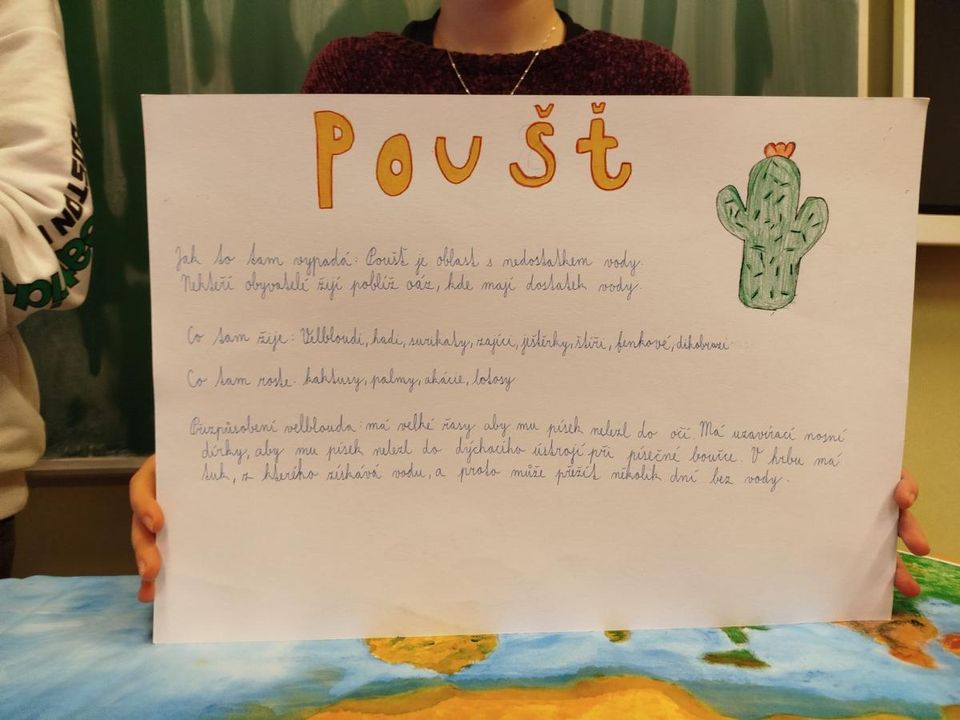 Poušť
Jak to tam vypadá: Poušť je oblast s nedostatkem vody.
Někteří obyvatelé žijí poblíž oáz, kde mají dostatek vody.
Co tam žije: Velbloudi, hadi, surikaty, zajíci, ještěrky, štíři, fenkové, dikobrazi
Co tam roste: kaktusy, palmy, akácie, lotosy
Přizpůsobení velblouda: má velké řasy aby mu písek nelezl do očí. Má uzavírací nosní
dírky, aby mu písek nelezl do dýchacího ústrojí při písečné bouřce. V hrbu má
tuk, z kterého získává vodu, a proto může přežít několik dní bez vody.
BOSTON